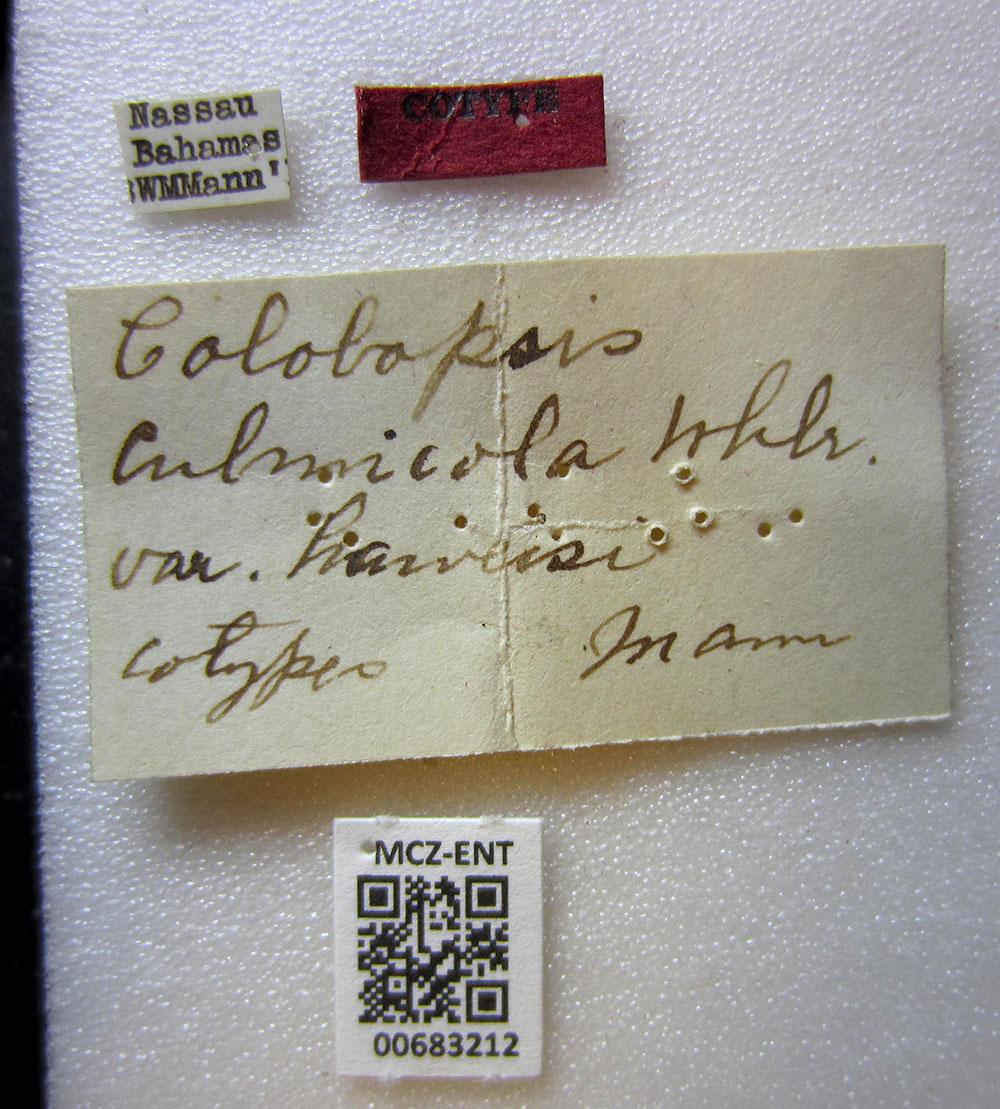 Nassau
Bahamas
WMMann
COTYPE
Colobopsis
Culmicola Whlr.
var. haweisi
cotypes Mann
MCZ-ENT
00683212